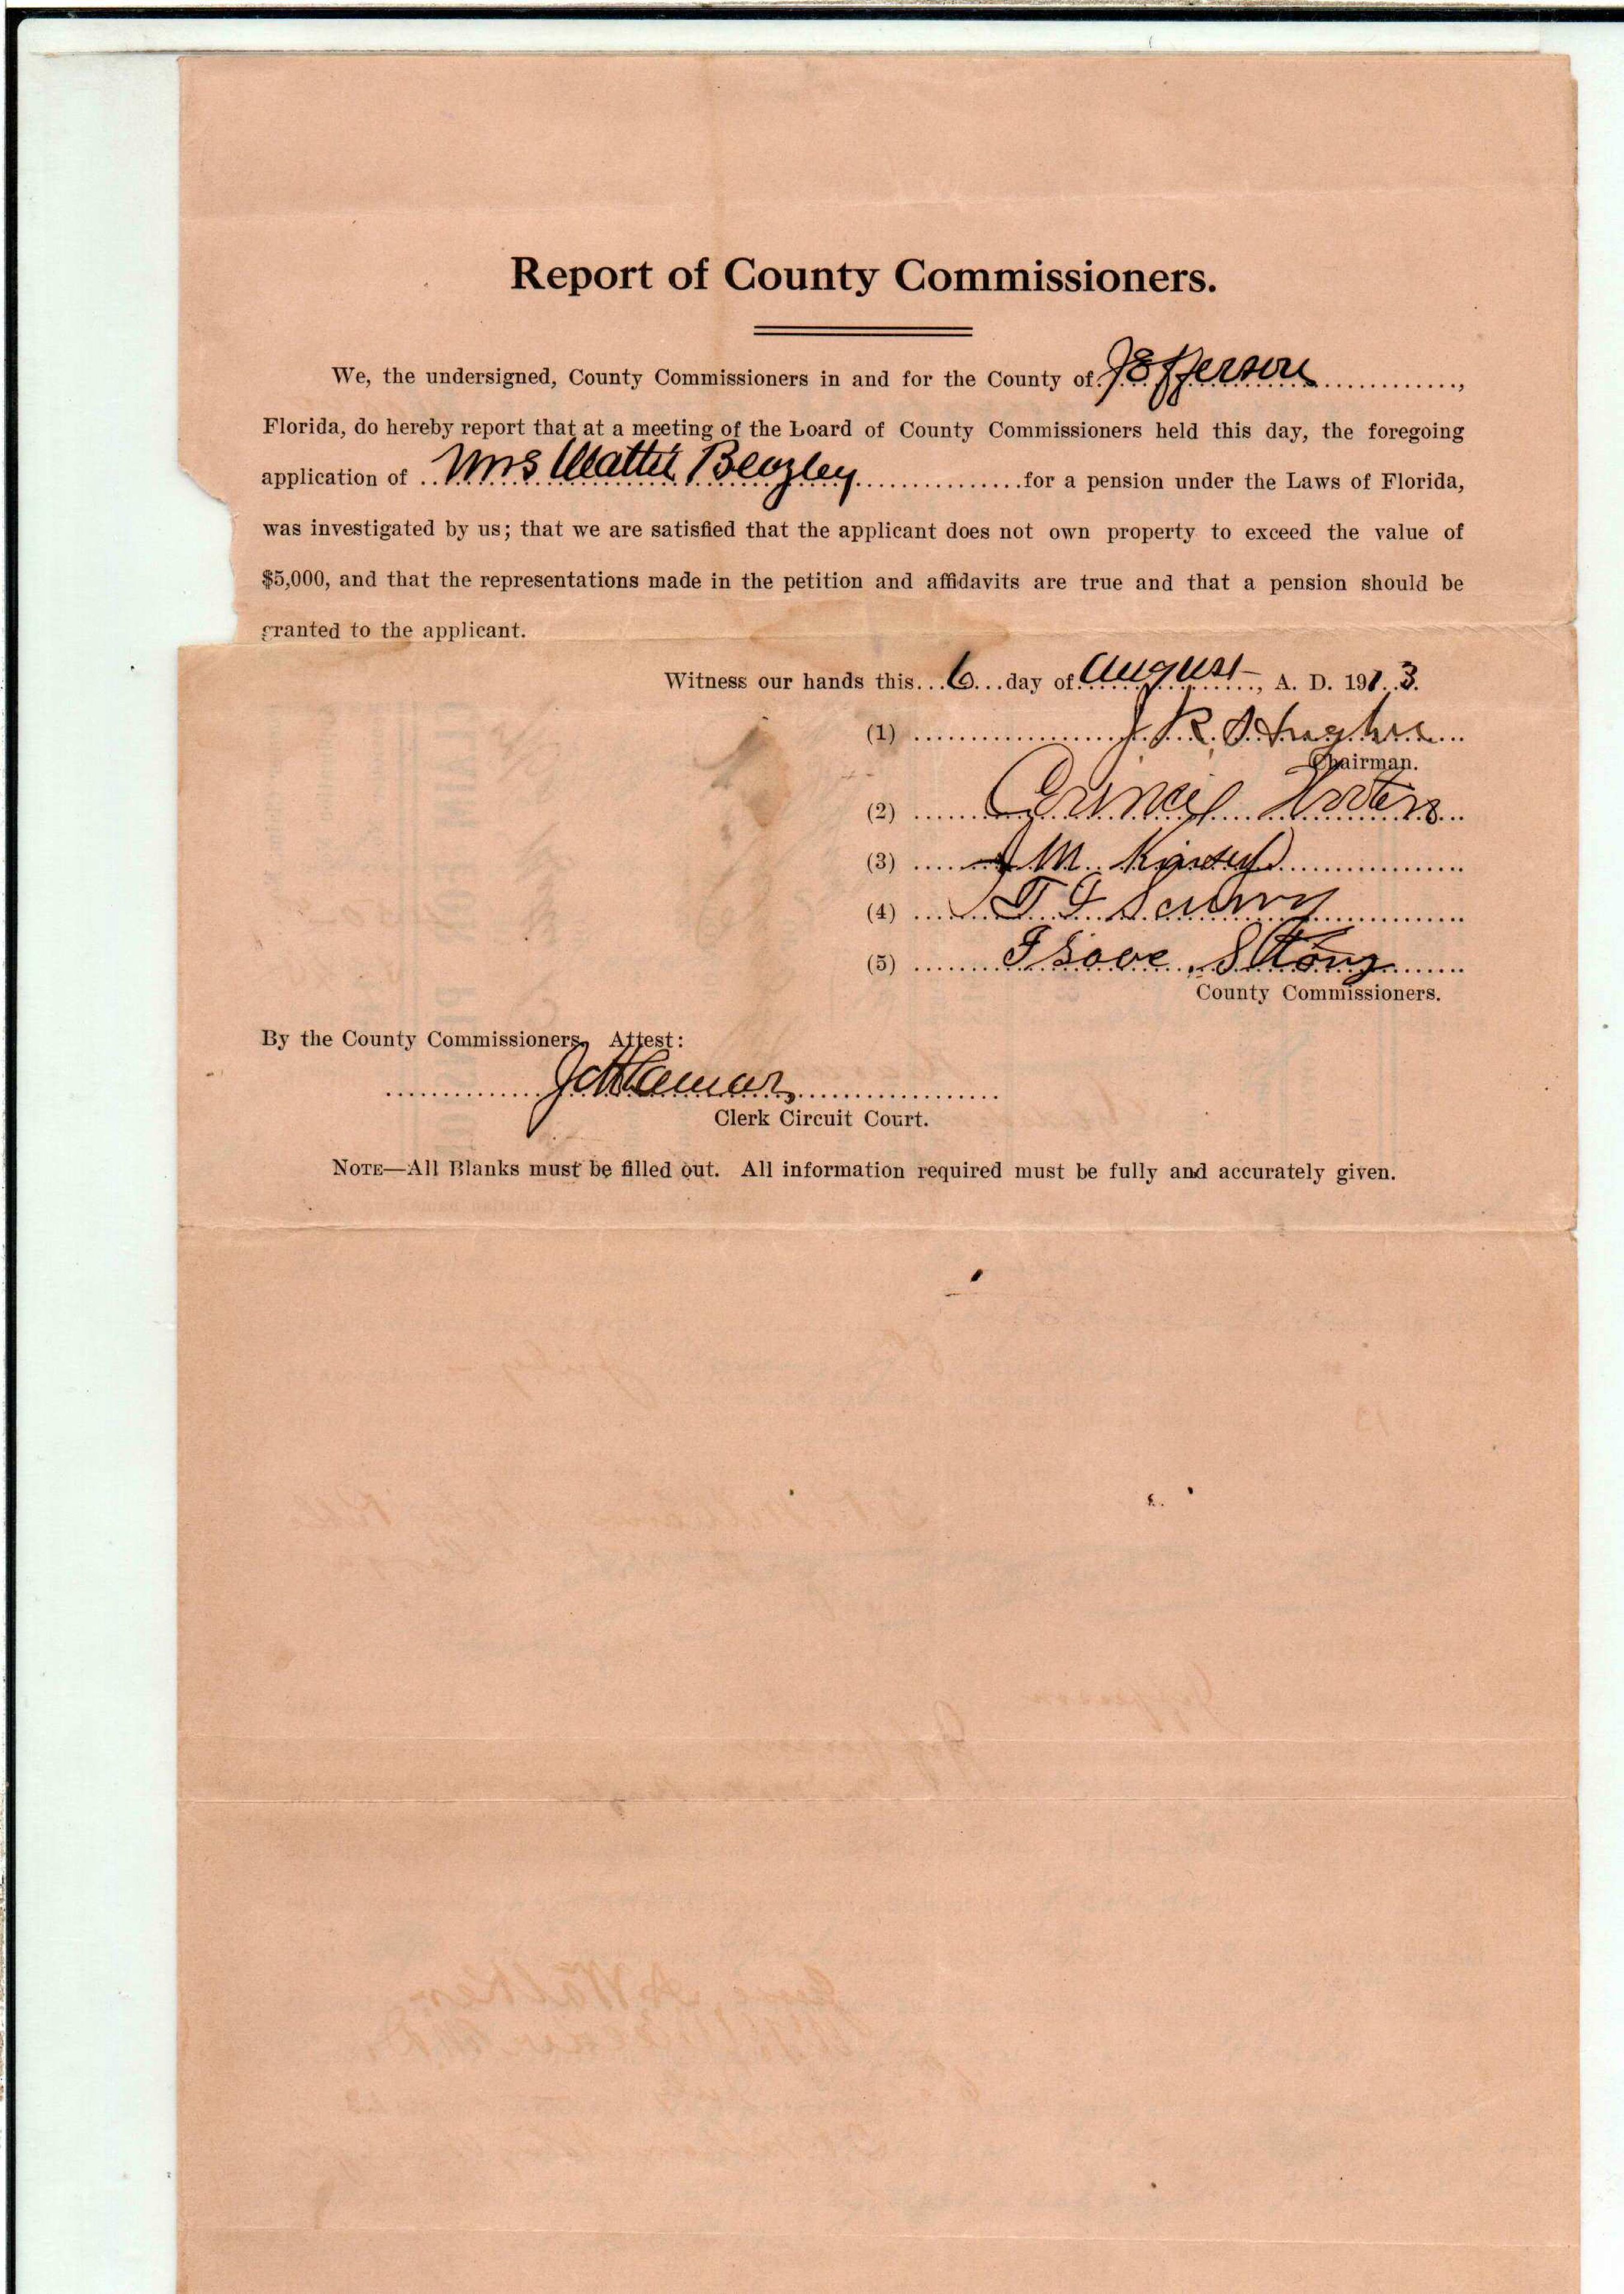 Report of County Commissioners.
We, the undersigned, County Commissioners in and for the County of Jefferson,
Florida, do hereby report that at a meeting of the Board of County Commissioners held this day, the foregoing
application of Mrs Mattie Beazley for a pension under the Laws of Florida,
was investigated by us; that we are satisfied that the applicant does not own property to exceed the value of
$5,000, and that the representations made in the petition and affidavits are true and that a pension should be
granted to the applicant.
Witness our hands this 6 day of August, A. D. 1913.
(1) J R
Chairman.
(2)
(3) J M
(4) T J
(5) Strong
County Commissioners.
By the County Commissioners, Attest:
Clerk Circuit Court.
NOTE—All Blanks must be filled out. All information required must be fully and accurately given.